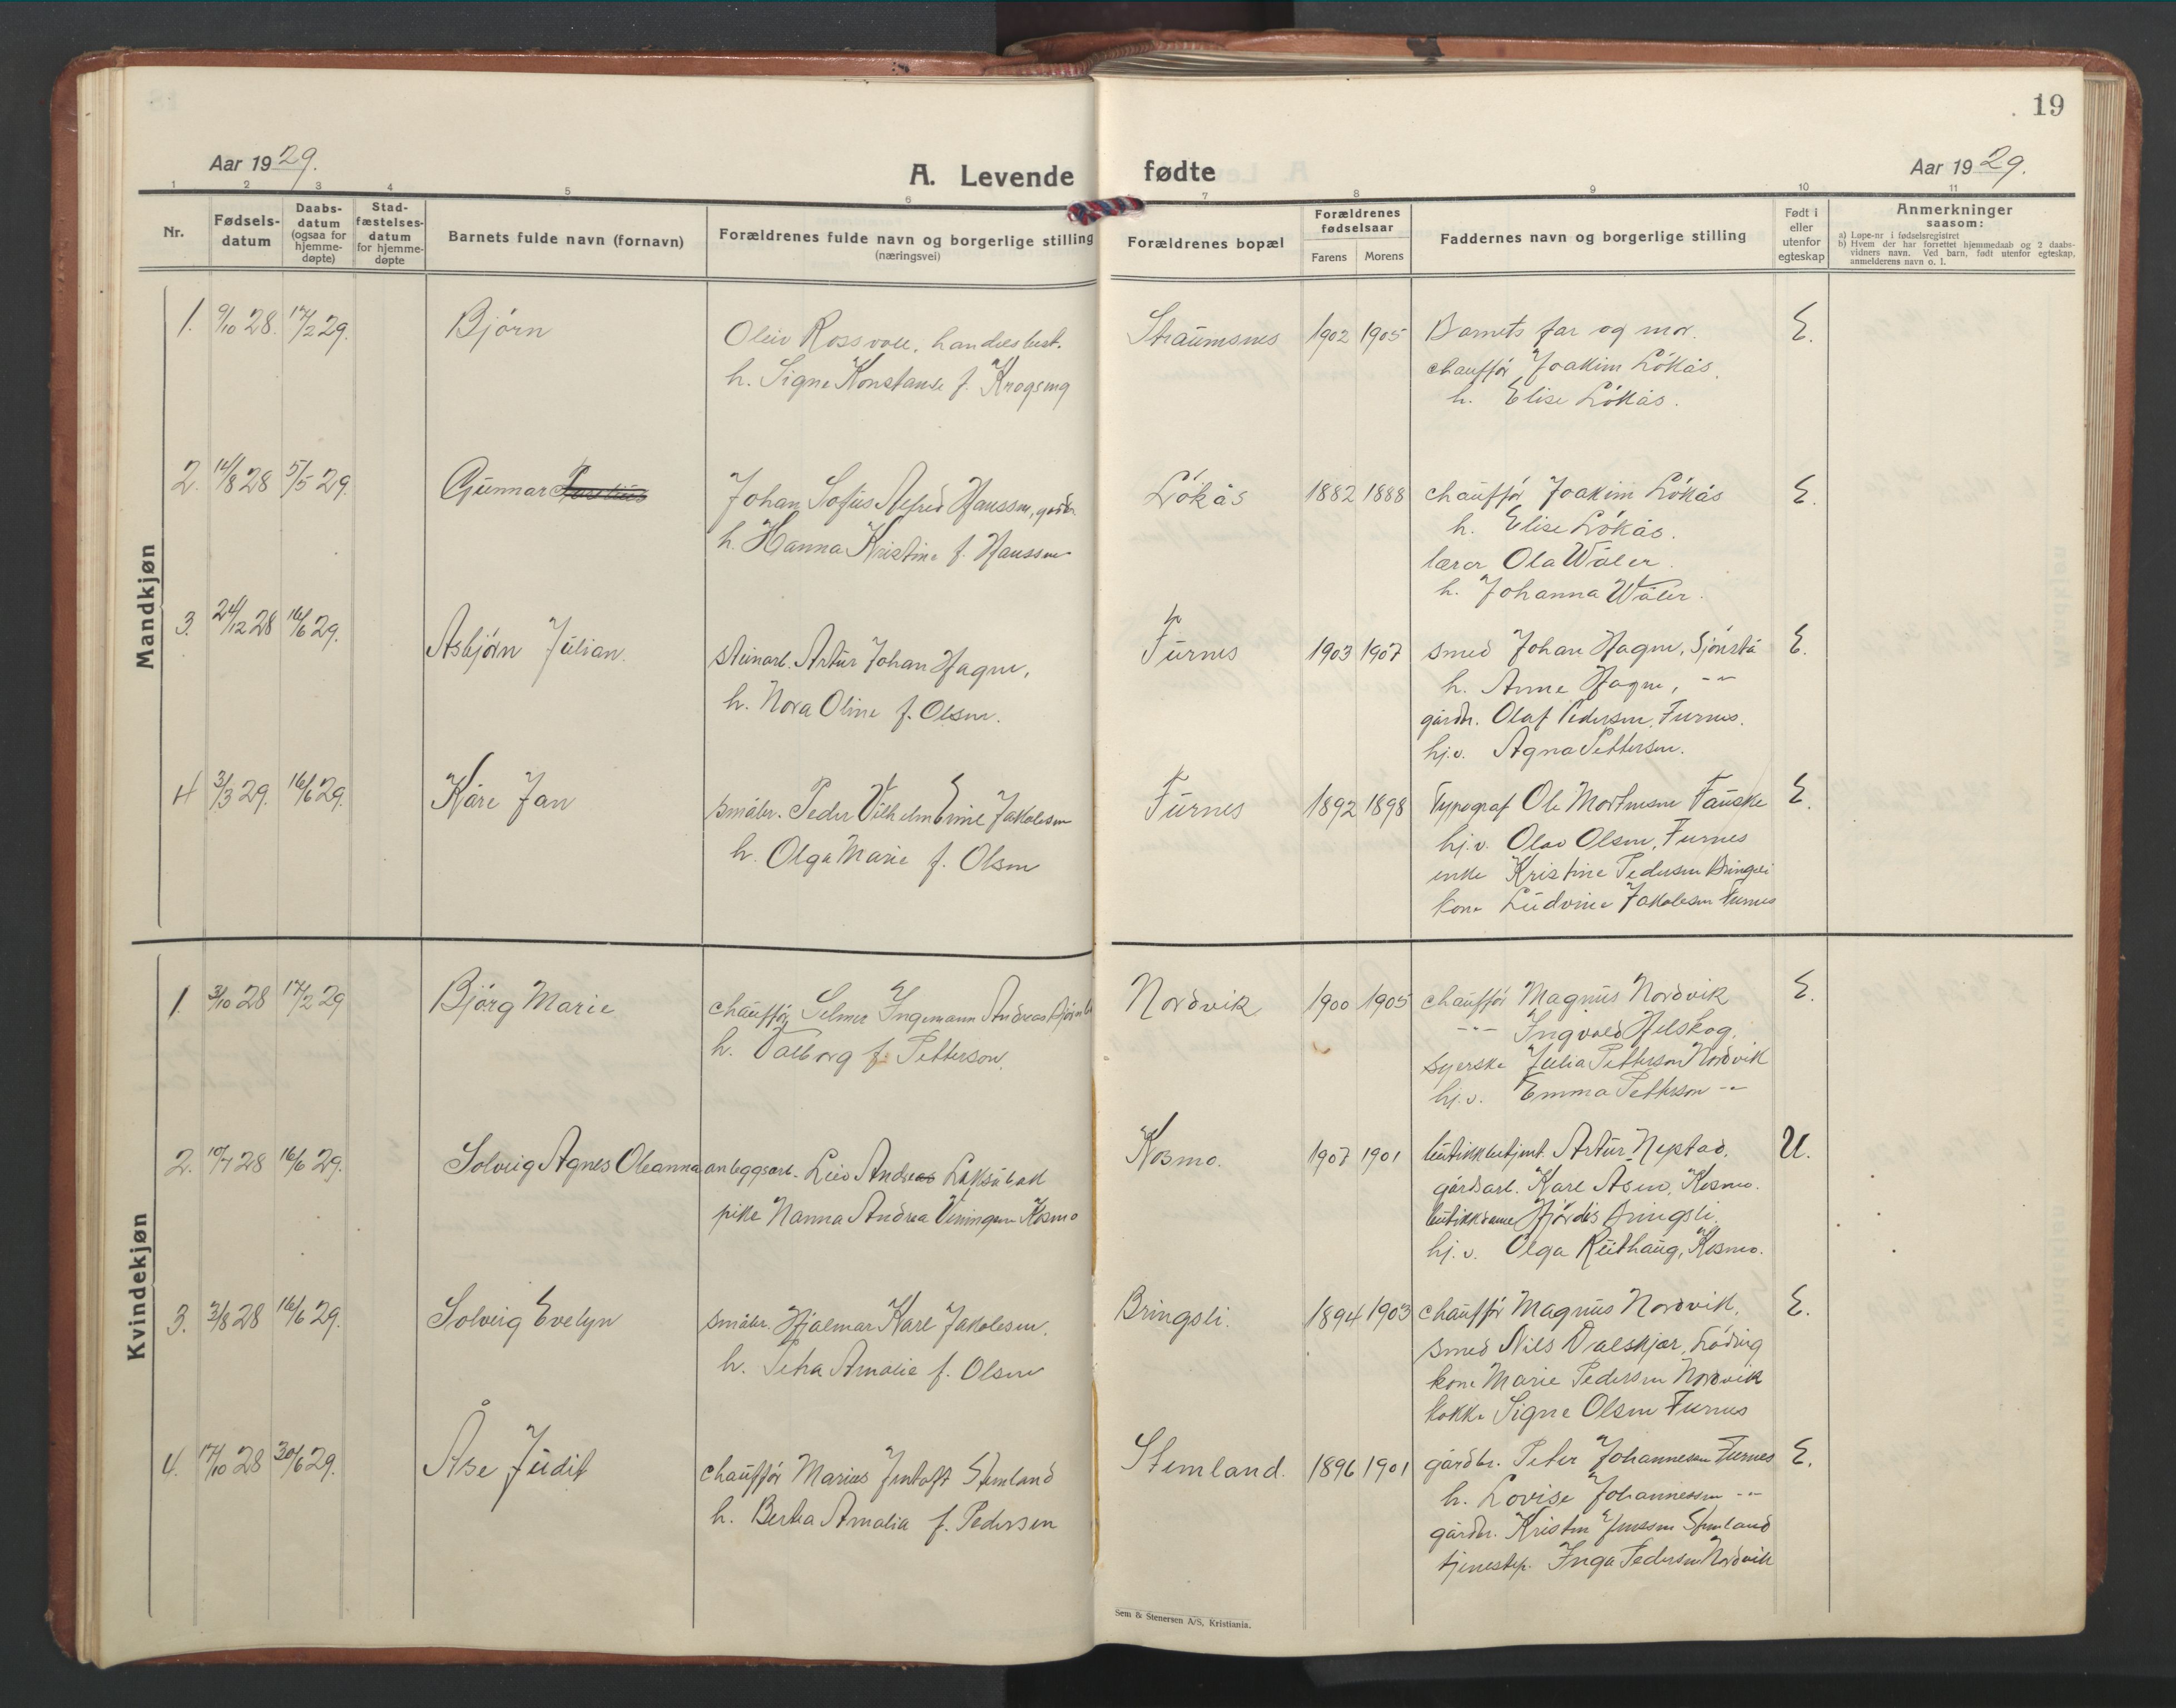 19
Aar 1929.
A. Levende fødte
Aar 1929.
1 2 3 4 5 6 7 8 9 10 11
Nr.
Fødsels-
datum
Daabs-
datum
(ogsaa for
hjemme-
døpte)
Stad-
fæstelses-
datum
for hjemme-
døpte
Barnets fulde navn (fornavn)
Forældrenes fulde navn og borgerlige stilling
(næringsvei)
Forældrenes bopæl
Forældrenes
fødselsaar
Farens Morens
Faddernes navn og borgerlige stilling
Født i
eller
utenfor
egteskap
Anmerkninger
saasom:
a) Løpe-nr i fødselsregistret
b) Hvem der har forrettet hjemmedaab og 2 daabs-
vidners navn. Ved barn, født utenfor egteskap,
anmelderens navn o. l.
Mandkjøn
1. 9/10 28. 17/2 29. Bjørn
Oleiv Rossvoll, handelsbest.
h. Signe Konstanse f. Krogseng
Straumsnes 1902 1905
Barnets far og mor.
chauffør Joakim Løkås.
h. Elise Løkås.
E.
2. 14/8 28 5/5 29. Gunnar
Johan Sofus Alfred Hanssen, gårdbr.
h. Hanna Kristine f. Hanssen
Løkås 1882 1888
chauffør Joakim Løkås
h. Elise Løkås.
lærer Ola Wåler.
h. Johanna Wåler.
E.
3. 24/12 28 16/6 29. Asbjørn Julian.
steinarb. Artur Johan Hagen,
h. Nora Oline f. Olsen.
Furnes 1903 1907
smed Johan Hagen, Sjønstå
h. Anne Hagen, -"-
gårdbr. Olaf Pedersen, Furnes.
hj.v. Agna Pettersen.
E.
4 3/3 29. 16/6 29. Kåre Jan
småbr. Peder Vilhelm Emil Jakobsen
h. Olga Marie f. Olsen
Furnes 1892 1898
Typograf Ole Mortensen Fauske
hj.v. Olav Olsen, Furnes
enke Kristine Pedersen Bringsli
kone Ludvine Jakobsen Furnes
E.
Kvindekjøn
1. 3/10 28 17/2 29 Bjørg Marie
chauffør Selmer Ingemann Andreas
h. Valborg f. Petterson.
Nordvik 1900 1905
chauffør Magnus Nordvik
-"- Ingvald Helskog.
syerske Julia Petterson Nordvik
hj.v. Emma Petterson -"-
E.
2. 10/7 28 16/6 29. Solveig Agnes Oleanna
anleggsarb. Leiv Andreas Laksåbak
pike Nanna Andrea Viningsen Kosmo
Kosmo. 1907 1901
butikkbetjent. Artur Nepstad.
gårdsarb. Karl Åsen, Kosmo.
butikkdame Hjørdis Bringsli.
hj.v. Olga Reithaug, Kosmo.
U.
3. 3/8 28 16/6 29. Solveig Evelyn
småbr. Hjalmar Karl Jakobsen.
h. Petra Amalie f. Olsen
Bringsli. 1894 1903
chauffør Magnus Nordvik,
smed Nils Valskjær, Løding
kone Marie Pedersen Nordvik
kokke Signe Olsen Furnes
E.
4. 17/10 28 30/6 29. Åse Judit
chauffør Marius Jentoft Stemland
h. Berta Amalia f. Pedersen
Stemland. 1896 1901
gårdbr. Peter Johannessen Furnes
h. Lovise Johannessen -"-
gårdbr. Kristen Jenssen Stemland
tjenestep. Inga Pedersen Nordvik
E.
Sem & Stenersen A/S, Kristiania.